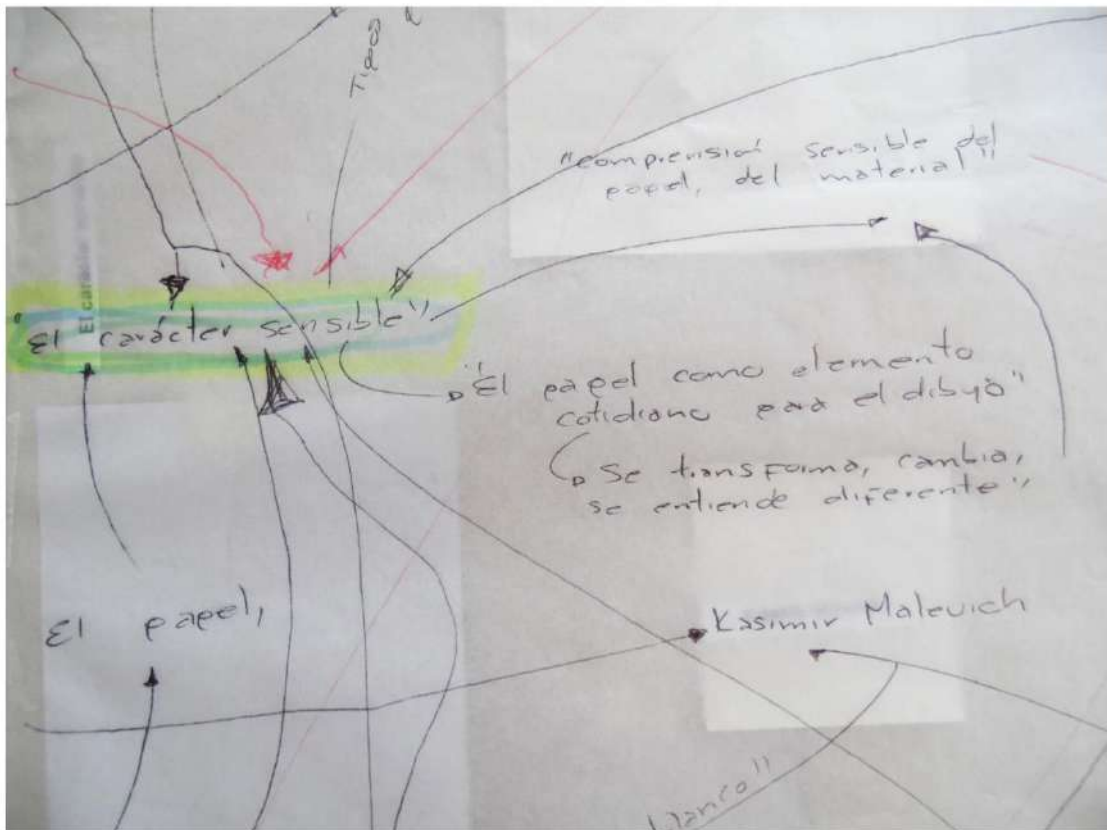 Tipos
"comprensión sensible del
papel, del material"
El carácter
"El carácter sensible"
"El papel como elemento
cotidiano para el dibujo"
Se transforma, cambia,
se entiende diferente"
El papel,
Kasimir Malevich
blanco"